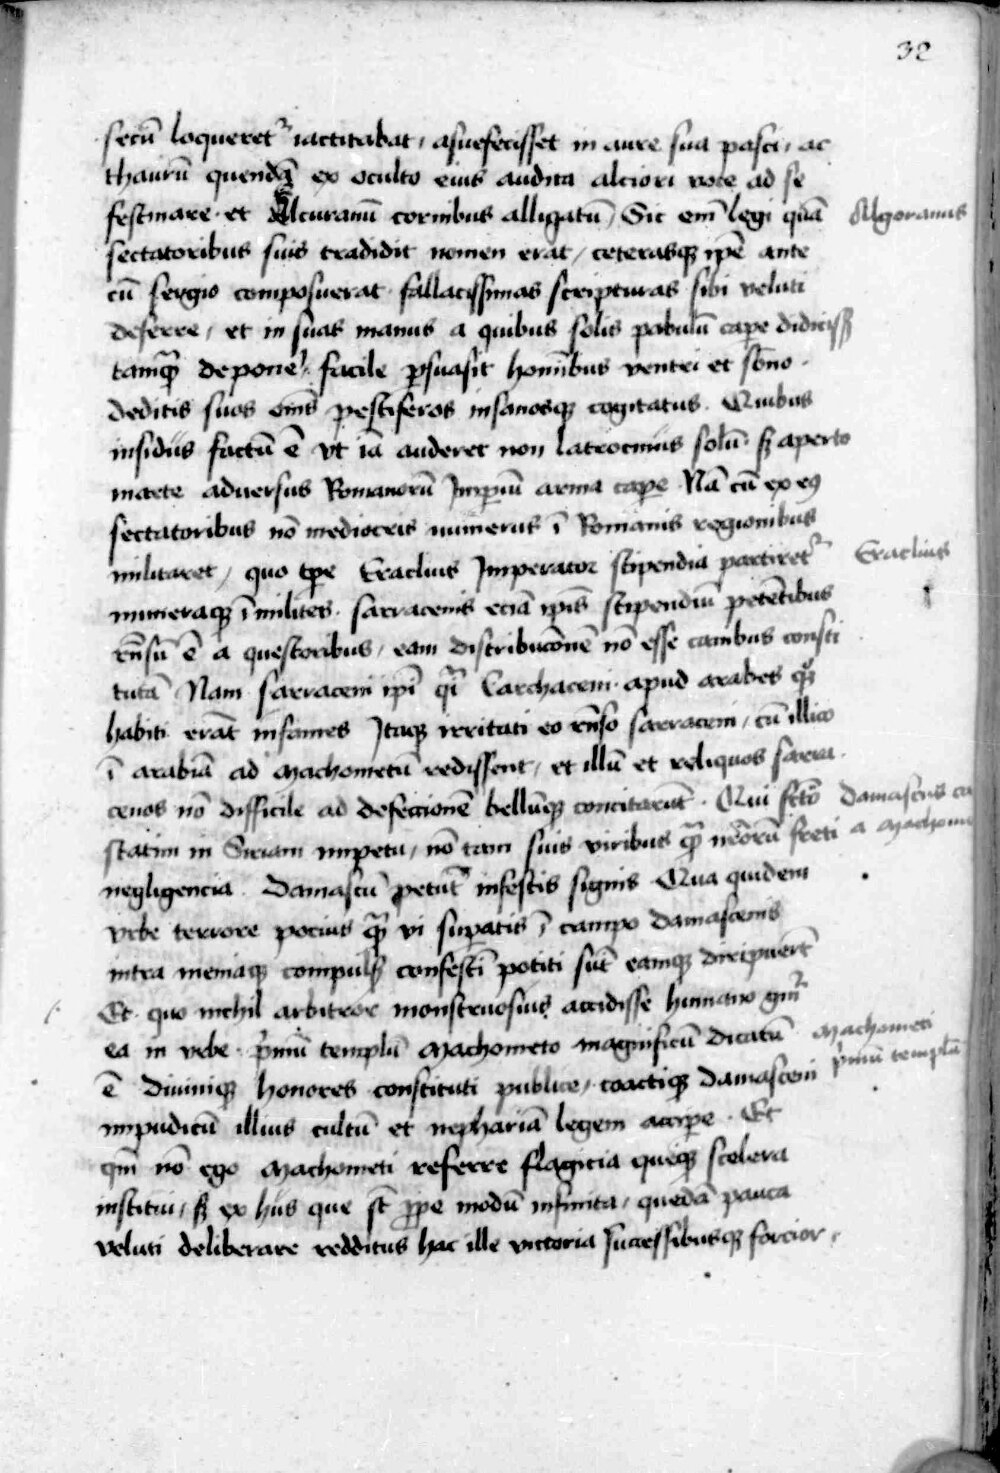 32
secū loqueret᷑ iactitabat, asuefecisset in aure sua pasci, ac
thaurū quendā ex oculto eius audita alciori voce ad se
festinare. et Alcuranū cornibus alligatū, Sic em̄ legi quā
Algoranus
sectatoribus suis tradidit nomen erat, ceterasqꝫ ip̄e ante
cū sergio composuerat. fallacissimas scripturas sibi veluti
deferre, et in suas manus a quibus solis pabulū capͤe didicissꝫ
tamqᷓ deponeͬ. facile ꝑsuasit homībus ventri et sōno.
deditis suos om̄s pestiferos insanosqꝫ cogitatus. Quibus
insidiis factū ē vt iā auderet non latrociniis solū. sꝫ aperto
marte adversus Romanorū Imꝑiū arma capͤe Nā cū ex eꝰ
sectatoribus nō mediocris numerus ī Romanis regionibus
militaret, quo tꝑe Eraclius Imperator stipendia partiret᷑
Eraclius
numeraqꝫ ī milites. sarracenis eciā ip̄is stipendiū petētibus
rn̄sū ē a questoribus, eam distribucōnē nō esse canibus consti
tutā Nam sarraceni ip̄i qͥ Carchaceni. apud arabes qͦsꝫ
habiti erāt infames Itaqꝫ irritati eo rn̄so sarraceni, cū illico
ī arabiā ad machometū redissent, et illū et reliquos sarra.
cenos nō difficile ad defeccionē bellūqꝫ concitarūt. Qui fctō
Damascus ca
statim in Siriam impetu, nō tam suis viribus qᷓ nr̄orū freti
a machome
negligencia. Damascū petūt infestis signis. Qua quidem
vrbe terrore pocius qᷓ vi suꝑatis ī campo damascenis
intra meniaqꝫ compulsꝫ confestī potiti sūt eamqꝫ diripuerūt
Et. quo nichil arbitror monstruosius accidisse humano gn̄i
ea in vrbe. pͥmū templū machometo magnificū dicatū
machometi
ē Diviniqꝫ honores constituti publice, coactiqꝫ Damasceni
pͥmū templū
impudicū illius cultū et nephariā legem accipͤe. Et
qm̄ nō ego machometi referre flagicia queqꝫ scelera
institui, sꝫ ex hiis que st̄ ꝓpe modū infinita, quedā pauca
veluti deliberare redditus hac ille victoria successibusqꝫ forcior,